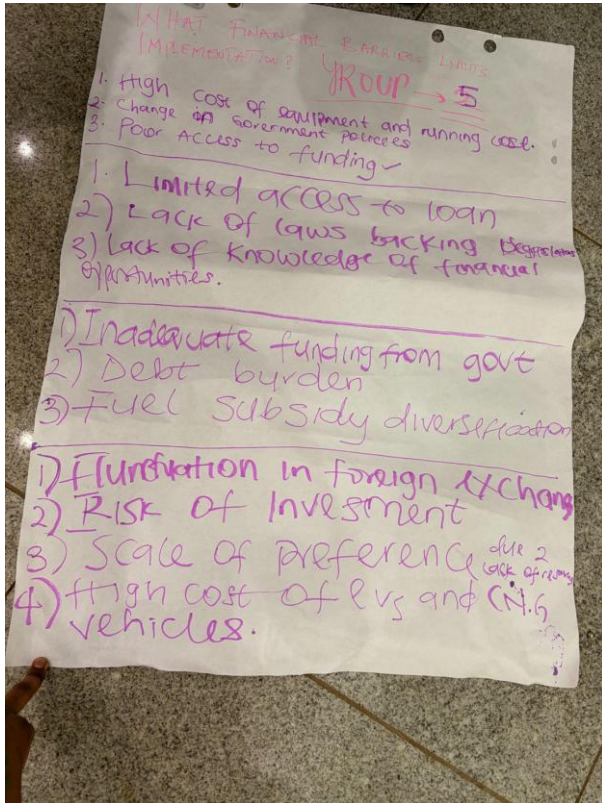 WHAT FINANCIAL BARRIERS LIMITS
IMPLEMENTATION?
GROUP → 5
1. High cost of equipment and running cost.
2. Change in Government policies
3. Poor Access to funding ✓
1. Limited access to loan
2) Lack of laws backing
3) Lack of knowledge of financial
opportunities.
1) Inadequate funding from govt
2) Debt burden
3) Fuel subsidy diversification
1) Flunctuation in foreign exchang
2) Risk of Invesment
3) Scale of preference due 2
lack of
4) High cost of evs and CN.G
vehicles.